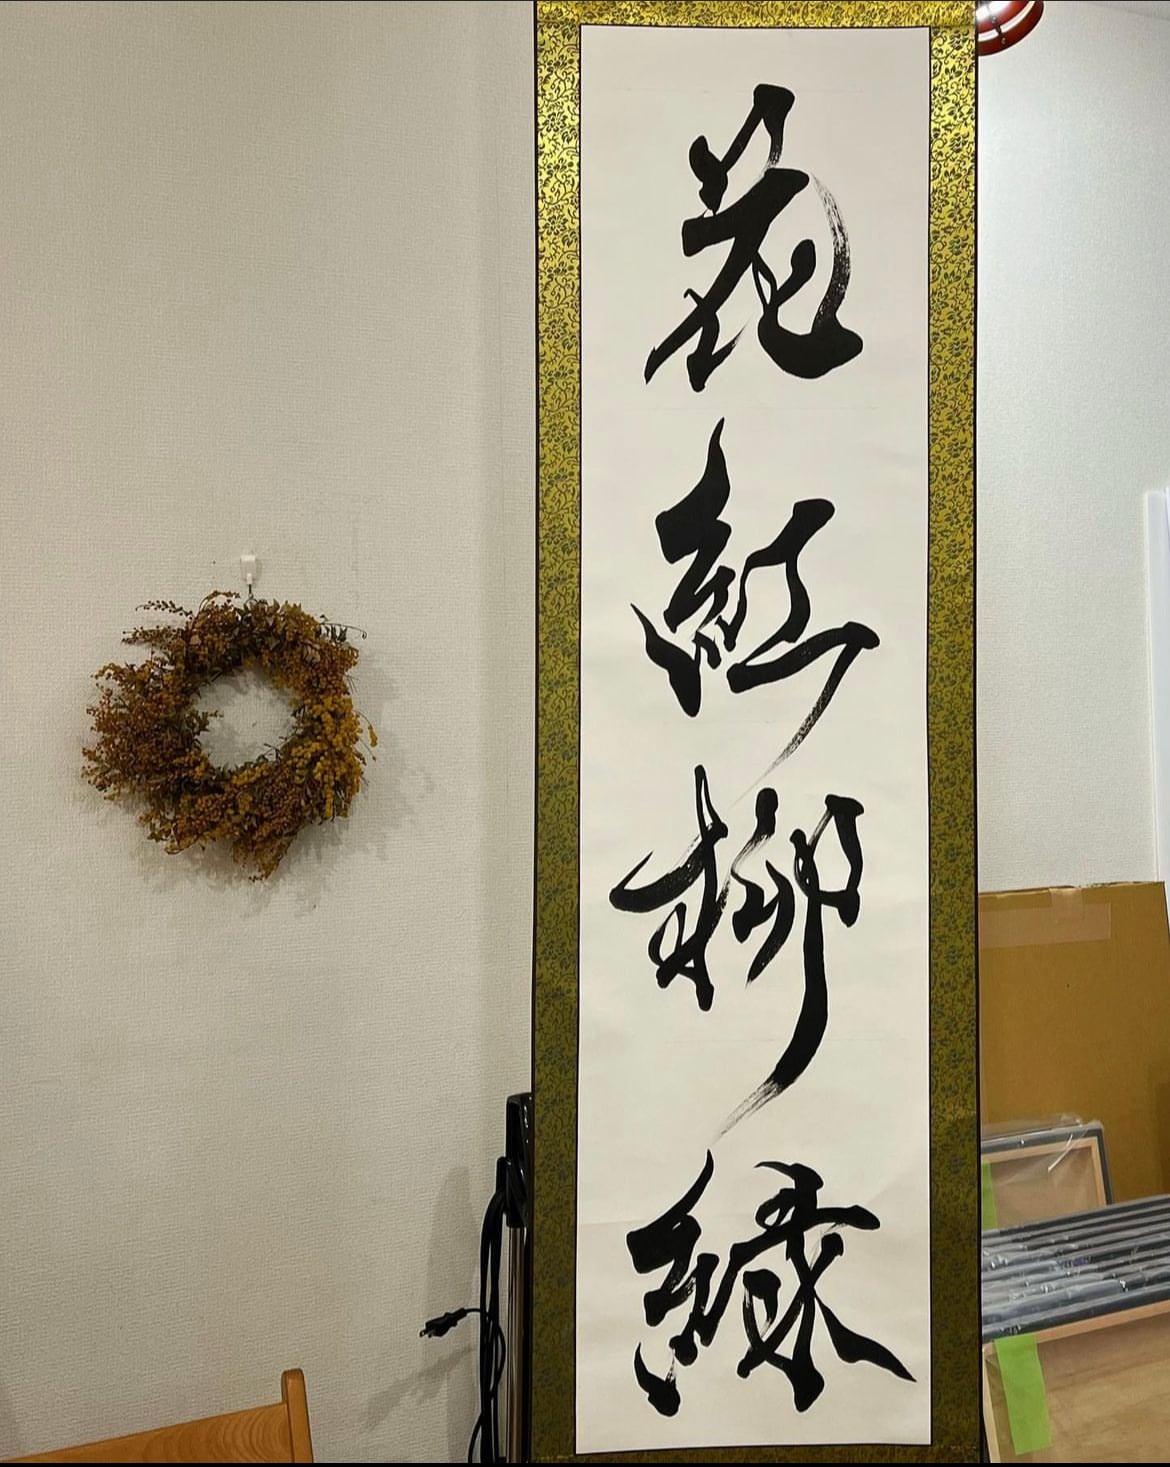 花紅柳緑